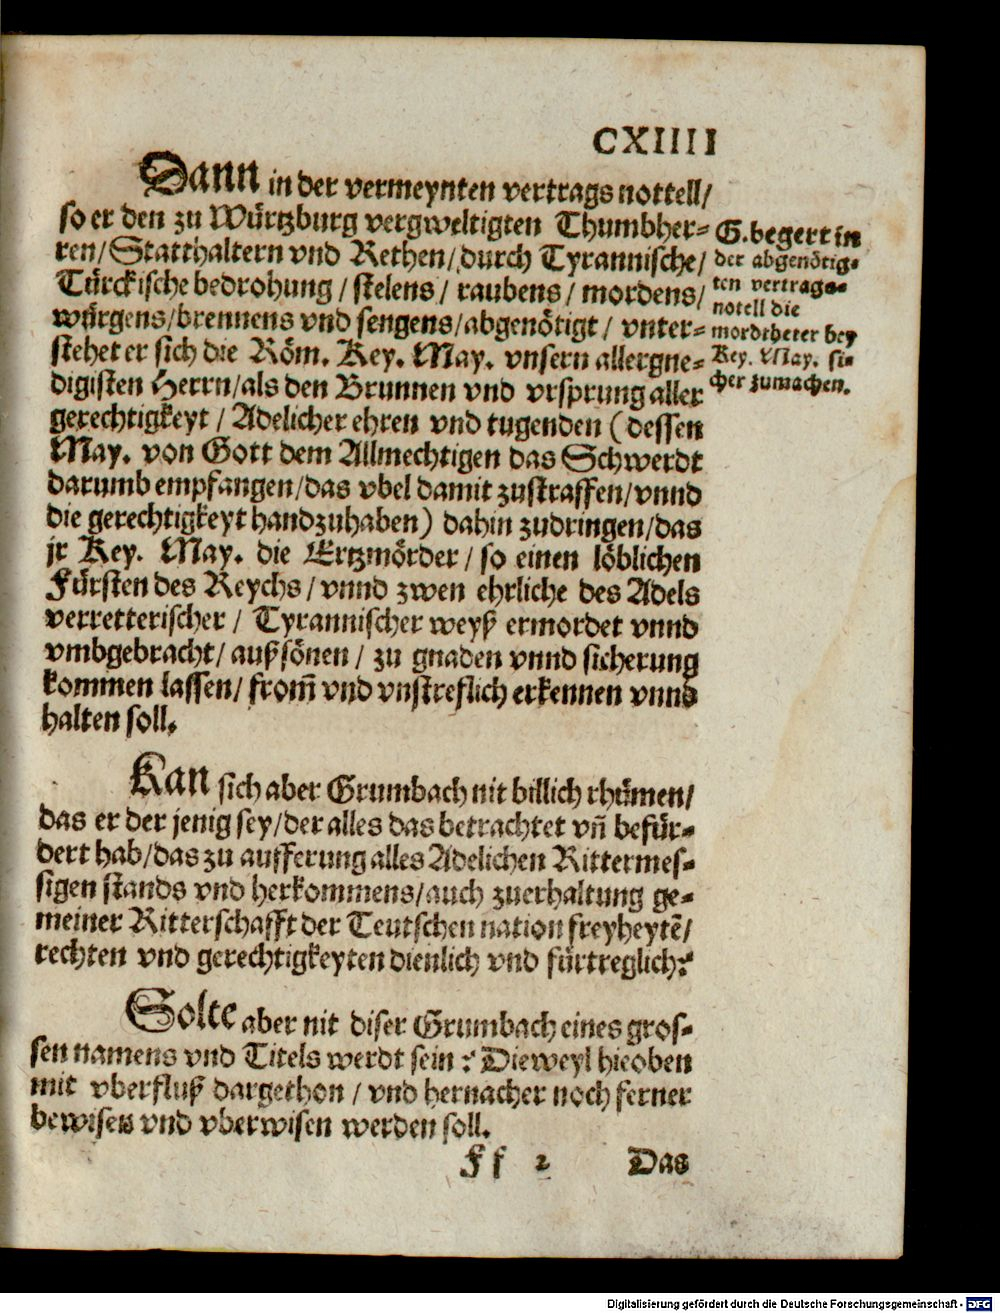 CXIIII
Dann in der vermeynten vertrags nottell/
so er den zu Würtzburg vergweltigten Thumbher-
ren/Statthaltern vnd Rethen/durch Tyrannische/
Türckische bedrohung/stelens/raubens/mordens/
würgens/brennens vnd sengens/abgenötigt/vnter-
stehet er sich die Röm. Key. May. vnsern allergne-
digisten Herrn/als den Brunnen vnd vrsprung aller
gerechtigkeyt/Adelicher ehren vnd tugenden (dessen
May. von Gott dem Allmechtigen das Schwerdt
darumb empfangen/das vbel damit zustraffen/vnnd
die gerechtigkeyt handzuhaben) dahin zudringen/das
jr Key. May. die Ertzmörder/so einen löblichen
Fürsten des Reychs/vnnd zwen ehrliche des Adels
verretterischer/Tyrannischer weyß ermordet vnnd
vmbgebracht/außsönen/zu gnaden vnnd sicherung
kommen lassen/from̃ vnd vnstreflich erkennen vnnd
halten soll.
G. begert in
der abgenötig-
ten vertrags-
notell die
mordtheter bey
Key. May. si-
cher zumachen.
Kan sich aber Grumbach nit billich rhümen/
das er der jenig sey/der alles das betrachtet vñ befür-
dert hab/das zu aufferung alles Adelichen Rittermes-
sigen stands vnd herkommens/auch zuerhaltung ge-
meiner Ritterschafft der Teutschen nation freyheytẽ/
rechten vnd gerechtigkeyten dienlich vnd fürtreglich?
Solte aber nit diser Grumbach eines gros-
sen namens vnd Titels werdt sein? Dieweyl hieoben
mit vberfluß dargethon/vnd hernacher noch ferner
bewisen vnd vberwisen werden soll.
Ff 2 Das
Digitalisierung gefördert durch die Deutsche Forschungsgemeinschaft - DFG